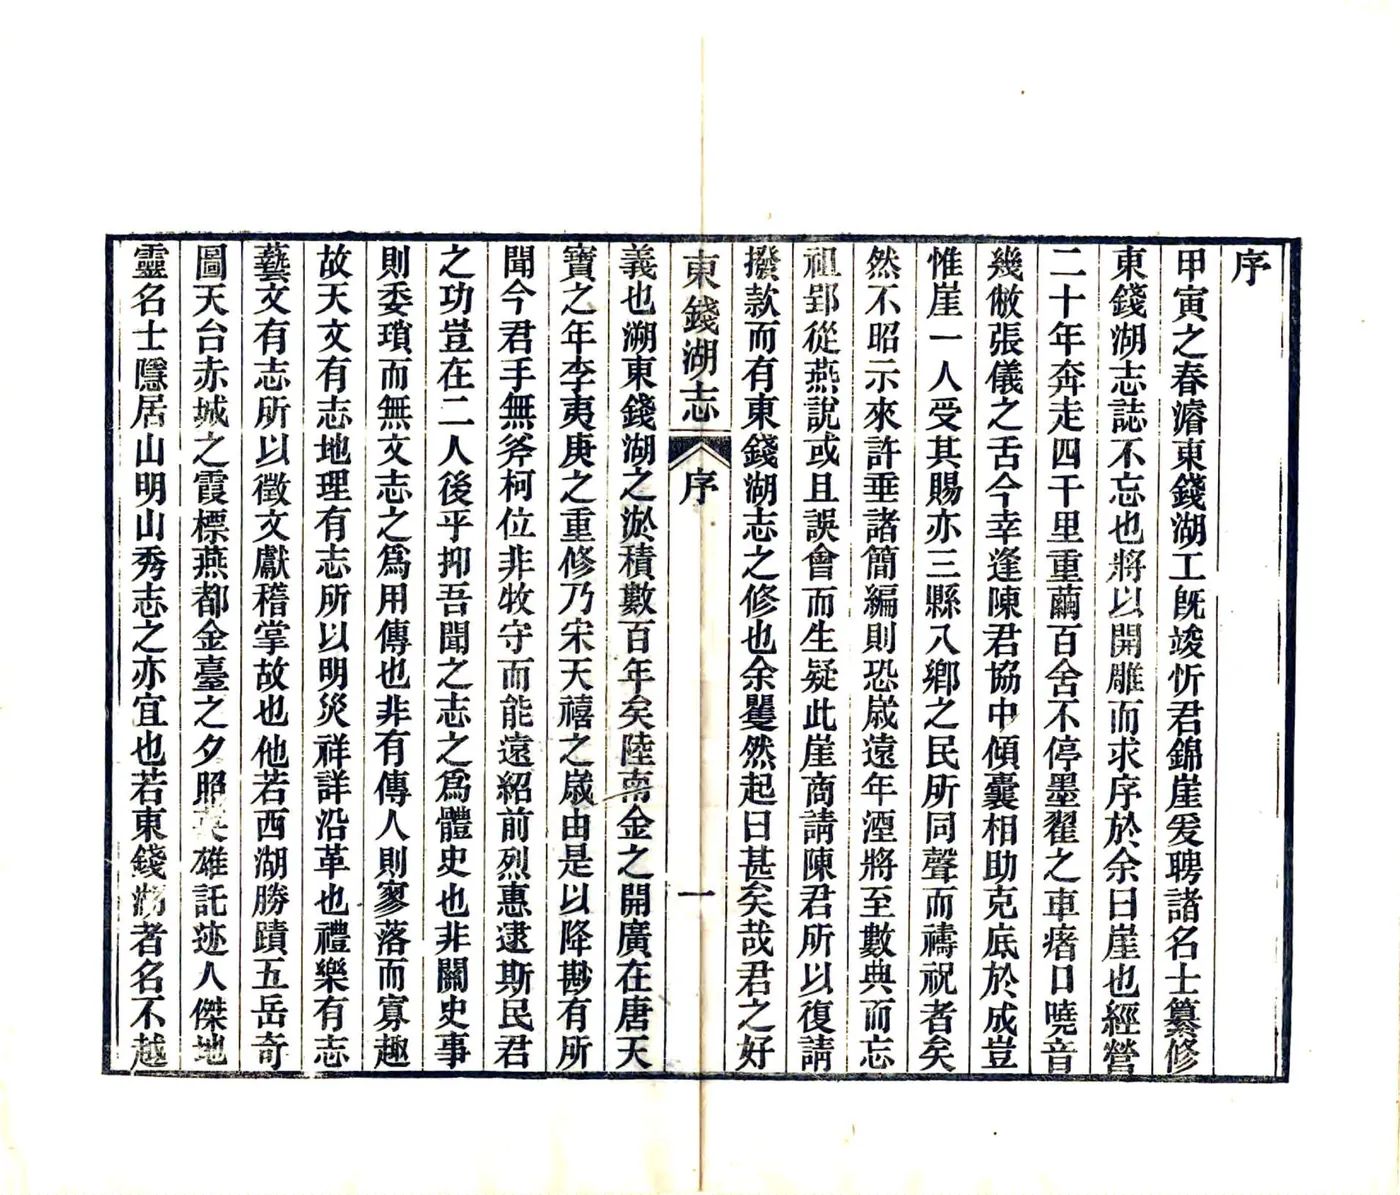 序
甲寅之春濬東錢湖工既竣忻君錦崖爰聘諸名士纂修
東錢湖志誌不忘也將以開雕而求序於余曰崖也經營
二十年奔走四千里重繭百舍不停墨翟之車瘏口嘵音
幾敝張儀之舌今幸逢陳君協中傾囊相助克底於成豈
惟崖一人受其賜亦三縣八鄉之民所同聲而禱祝者矣
然不昭示來許垂諸簡編則恐歲遠年湮將至數典而忘
祖郢從燕說或且誤會而生疑此崖商請陳君所以復請
撥款而有東錢湖志之修也余矍然起曰甚矣哉君之好
東錢湖志 序 一
義也溯東錢湖之淤積數百年矣陸南金之開廣在唐天
寶之年李夷庚之重修乃宋天禧之歲由是以降尠有所
聞今君手無斧柯位非牧守而能遠紹前烈惠逮斯民君
之功豈在二人後乎抑吾聞之志之爲體史也非關史事
則委瑣而無文志之爲用傳也非有傳人則寥落而寡趣
故天文有志地理有志所以明災祥詳沿革也禮樂有志
藝文有志所以徵文獻稽掌故也他若西湖勝蹟五岳奇
圖天台赤城之霞標燕都金臺之夕照英雄託迹人傑地
靈名士隱居山明山秀志之亦宜也若東錢湖者名不越